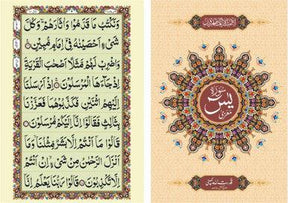 سُوْرَة
يٰسٓ
وَنَكْتُبُ مَا قَدَّمُوْا وَاٰثَارَهُمْ وَكُلَّ
شَيْءٍ اَحْصَيْنٰهُ فِيْٓ اِمَامٍ مُّبِيْنٍ
وَاضْرِبْ لَهُمْ مَّثَلًا اَصْحٰبَ الْقَرْيَةِ
اِذْ جَآءَهَا الْمُرْسَلُوْنَ اِذْ اَرْسَلْنَآ
اِلَيْهِمُ اثْنَيْنِ فَكَذَّبُوْهُمَا فَعَزَّزْنَا
بِثَالِثٍ فَقَالُوْٓا اِنَّآ اِلَيْكُمْ مُّرْسَلُوْنَ
قَالُوْا مَآ اَنْتُمْ اِلَّا بَشَرٌ مِّثْلُنَا وَمَآ
اَنْزَلَ الرَّحْمٰنُ مِنْ شَيْءٍ اِنْ اَنْتُمْ
اِلَّا تَكْذِبُوْنَ قَالُوْا رَبُّنَا يَعْلَمُ اِنَّآ